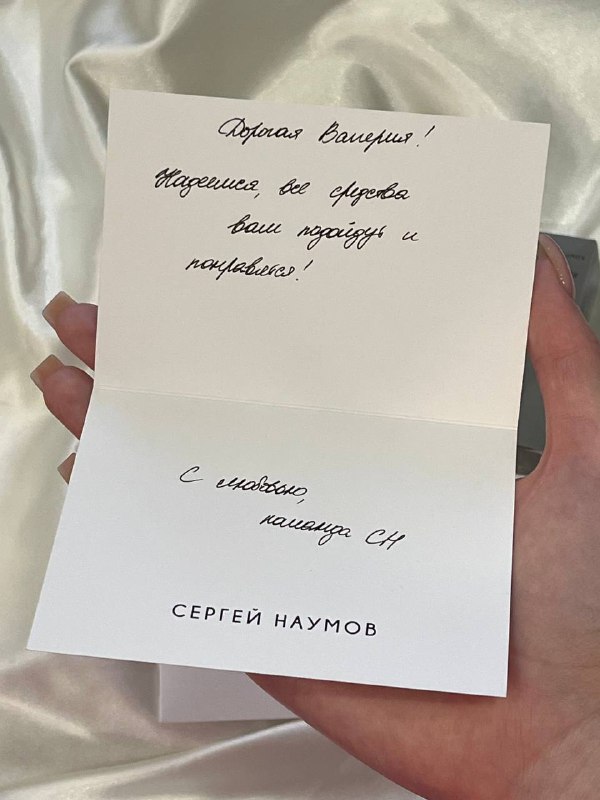 Дорогая Валерия!
Надеемся, все средства
вам подойдут и
понравятся!
С любовью,
команда СН
СЕРГЕЙ НАУМОВ